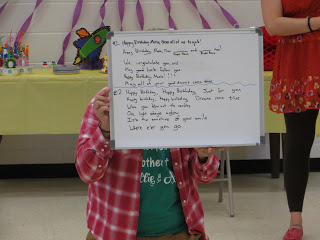 #1. Happy Birthday Maria, from all of us to you!
Happy Birthday Maria, from and too!
We congratulate you, and
May good luck follow you
Happy Birthday Maria!!!!
May all of your good dreams come true
#2 Happy Birthday, Happy Birthday, Just for you
Happy Birthday, Happy birthday, Dreams come true
When you blow out the candles
One light stays aglow
It's the sunshine of your smile
Where e'er you go.